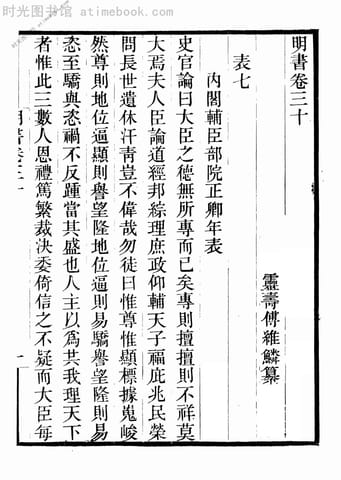 时光图书馆 atimebook.com
明書卷三十
靈壽傅維鱗纂
表七
内閣輔臣部院正卿年表
史官論曰大臣之德無所專而已矣專則擅擅則不祥莫
大焉夫人臣論道經邦綜理庶政仰輔天子福庇兆民榮
問長世遺休汗靑豈不偉哉勿徒曰惟尊惟顯標據嵬峻
然尊則地位逼顯則譽望隆地位逼則易驕譽望隆則易
忞至驕與忞禍不反踵當其盛也人主以爲其我理天下
者惟此二數人恩禮篤繁裁决委倚信之不疑而大臣每
明書卷三十
一